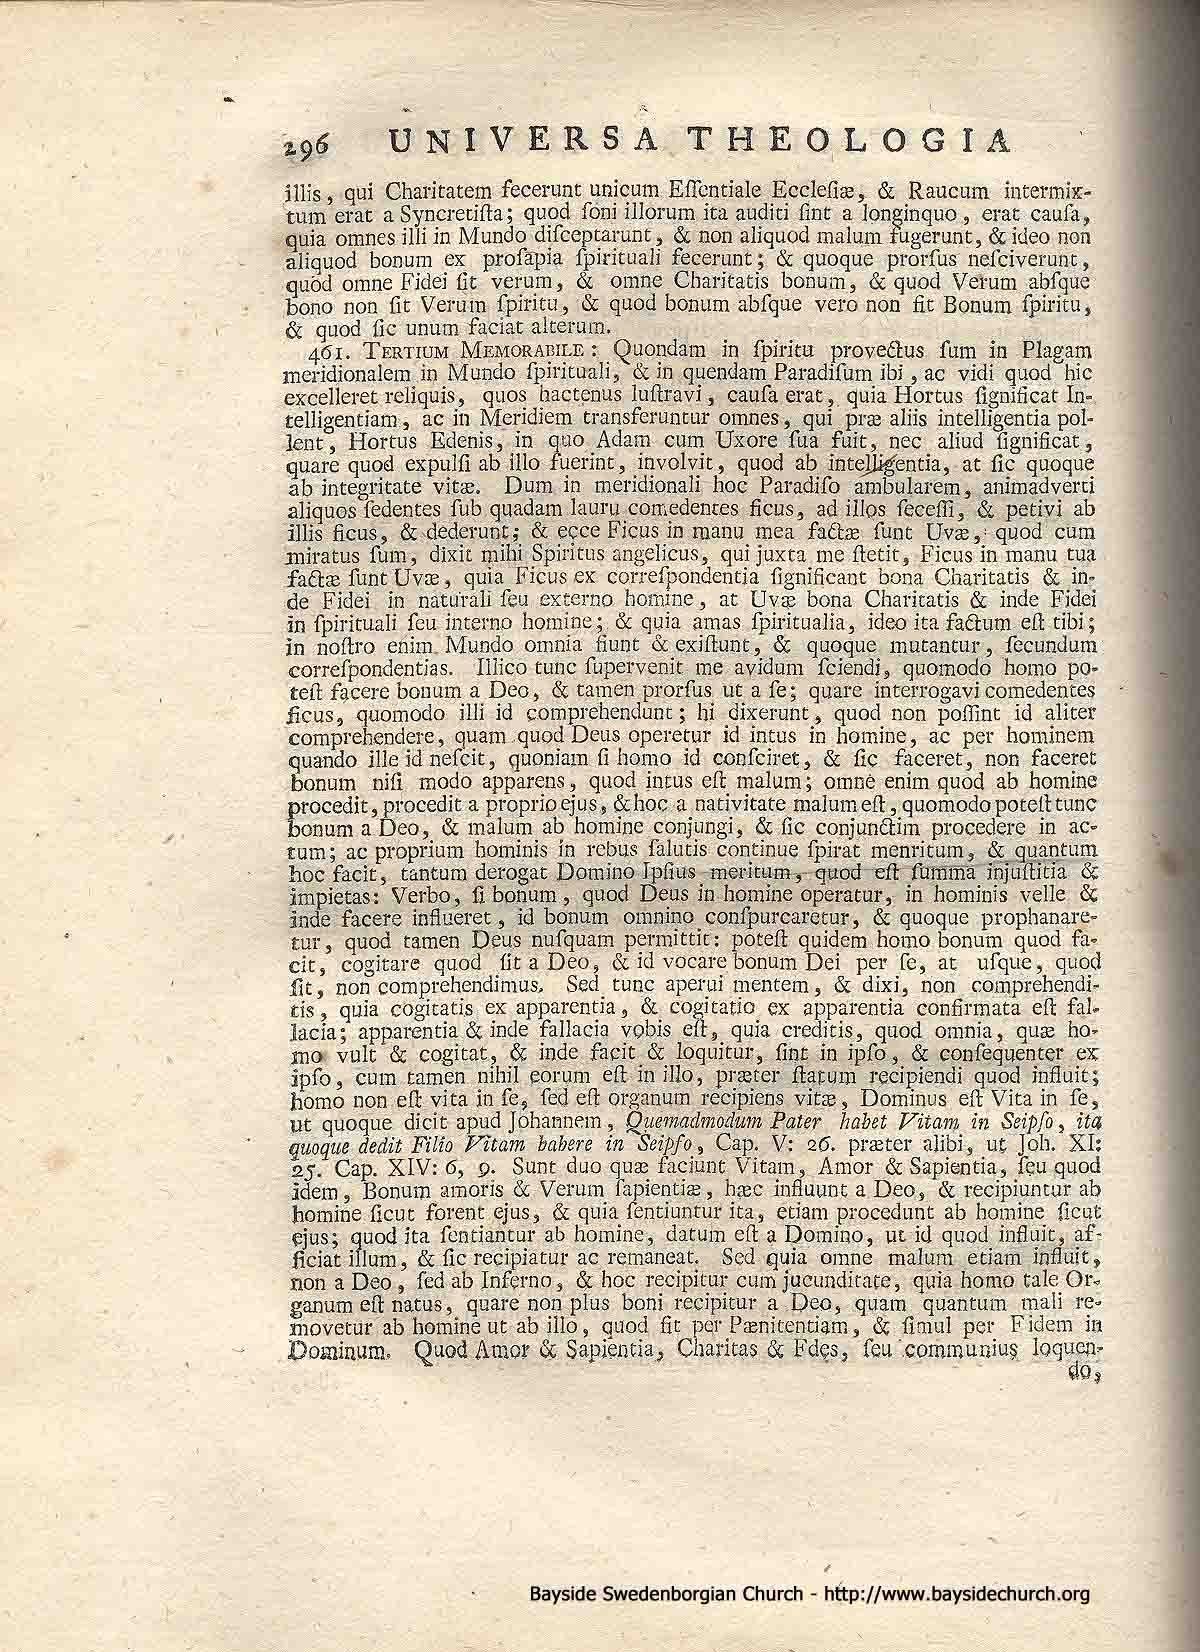 296 UNIVERSA THEOLOGIA
illis, qui Charitatem fecerunt unicum Eſſentiale Eccleſiæ, & Raucum intermix-
tum erat a Syncretiſta; quod ſoni illorum ita auditi ſint a longinquo, erat cauſa,
quia omnes illi in Mundo diſceptarunt, & non aliquod malum fugerunt, & ideo non
aliquod bonum ex proſapia ſpirituali fecerunt; & quoque prorſus neſciverunt,
quod omne Fidei ſit verum, & omne Charitatis bonum, & quod Verum abſque
bono non ſit Verum ſpiritu, & quod bonum abſque vero non ſit Bonum ſpiritu,
& quod ſic unum faciat alterum.
461. TERTIUM MEMORABILE: Quondam in ſpiritu provectus ſum in Plagam
meridionalem in Mundo ſpirituali, & in quendam Paradiſum ibi, ac vidi quod hic
excelleret reliquis, quos hactenus luſtravi, cauſa erat, quia Hortus ſignificat In-
telligentiam, ac in Meridiem transferuntur omnes, qui præ aliis intelligentia pol-
lent, Hortus Edenis, in quo Adam cum Uxore ſua fuit, nec aliud ſignificat,
quare quod expulſi ab illo fuerint, involvit, quod ab intelligentia, at ſic quoque
ab integritate vitæ. Dum in meridionali hoc Paradiſo ambularem, animadverti
aliquos ſedentes ſub quadam lauru comedentes ficus, ad illos ſeceſſi, & petivi ab
illis ficus, & dederunt; & ecce Ficus in manu mea factæ ſunt Uvæ, quod cum
miratus ſum, dixit mihi Spiritus angelicus, qui juxta me ſtetit, Ficus in manu tua
factæ ſunt Uvæ, quia Ficus ex correſpondentia ſignificant bona Charitatis & in-
de Fidei in naturali ſeu externo homine, at Uvæ bona Charitatis & inde Fidei
in ſpirituali ſeu interno homine; & quia amas ſpiritualia, ideo ita factum eſt tibi;
in noſtro enim Mundo omnia fiunt & exiſtunt, & quoque mutantur, ſecundum
correſpondentias. Illico tunc ſupervenit me avidum ſciendi, quomodo homo po-
teſt facere bonum a Deo, & tamen prorſus ut a ſe; quare interrogavi comedentes
ficus, quomodo illi id comprehendunt; hi dixerunt, quod non poſſint id aliter
comprehendere, quam quod Deus operetur id intus in homine, ac per hominem
quando ille id neſcit, quoniam ſi homo id conſciret, & ſic faceret, non faceret
bonum niſi modo apparens, quod intus eſt malum; omne enim quod ab homine
procedit, procedit a proprio ejus, & hoc a nativitate malum eſt, quomodo poteſt tunc
bonum a Deo, & malum ab homine conjungi, & ſic conjunctim procedere in ac-
tum; ac proprium hominis in rebus ſalutis continue ſpirat menritum, & quantum
hoc facit, tantum derogat Domino Ipſius meritum, quod eſt ſumma injuſtitia &
impietas: Verbo, ſi bonum, quod Deus in homine operatur, in hominis velle &
inde facere influeret, id bonum omnino conſpurcaretur, & quoque prophanare-
tur, quod tamen Deus nuſquam permittit: poteſt quidem homo bonum quod fa-
cit, cogitare quod ſit a Deo, & id vocare bonum Dei per ſe, at uſque, quod
ſit, non comprehendimus. Sed tunc aperui mentem, & dixi, non comprehendi-
tis, quia cogitatis ex apparentia, & cogitatio ex apparentia confirmata eſt fal-
lacia; apparentia & inde fallacia vobis eſt, quia creditis, quod omnia, quæ ho-
mo vult & cogitat, & inde facit & loquitur, ſint in ipſo, & conſequenter ex
ipſo, cum tamen nihil eorum eſt in illo, præter ſtatum recipiendi quod influit;
homo non eſt vita in ſe, ſed eſt organum recipiens vitæ, Dominus eſt Vita in ſe,
ut quoque dicit apud Johannem, Quemadmodum Pater habet Vitam in Seipſo, ita
quoque dedit Filio Vitam habere in Seipſo, Cap. V: 26. præter alibi, ut Joh. XI:
25. Cap. XIV: 6, 9. Sunt duo quæ faciunt Vitam, Amor & Sapientia, ſeu quod
idem, Bonum amoris & Verum ſapientiæ, hæc influunt a Deo, & recipiuntur ab
homine ſicut forent ejus, & quia ſentiuntur ita, etiam procedunt ab homine ſicut
ejus; quod ita ſentiantur ab homine, datum eſt a Domino, ut id quod influit, af-
ficiat illum, & ſic recipiatur ac remaneat. Sed quia omne malum etiam influit,
non a Deo, ſed ab Inferno, & hoc recipitur cum jucunditate, quia homo tale Or-
ganum eſt natus, quare non plus boni recipitur a Deo, quam quantum mali re-
movetur ab homine ut ab illo, quod fit per Pænitentiam, & ſimul per Fidem in
Dominum. Quod Amor & Sapientia, Charitas & Fdes, ſeu communius loquen-
do,
Bayside Swedenborgian Church - http://www.baysidechurch.org